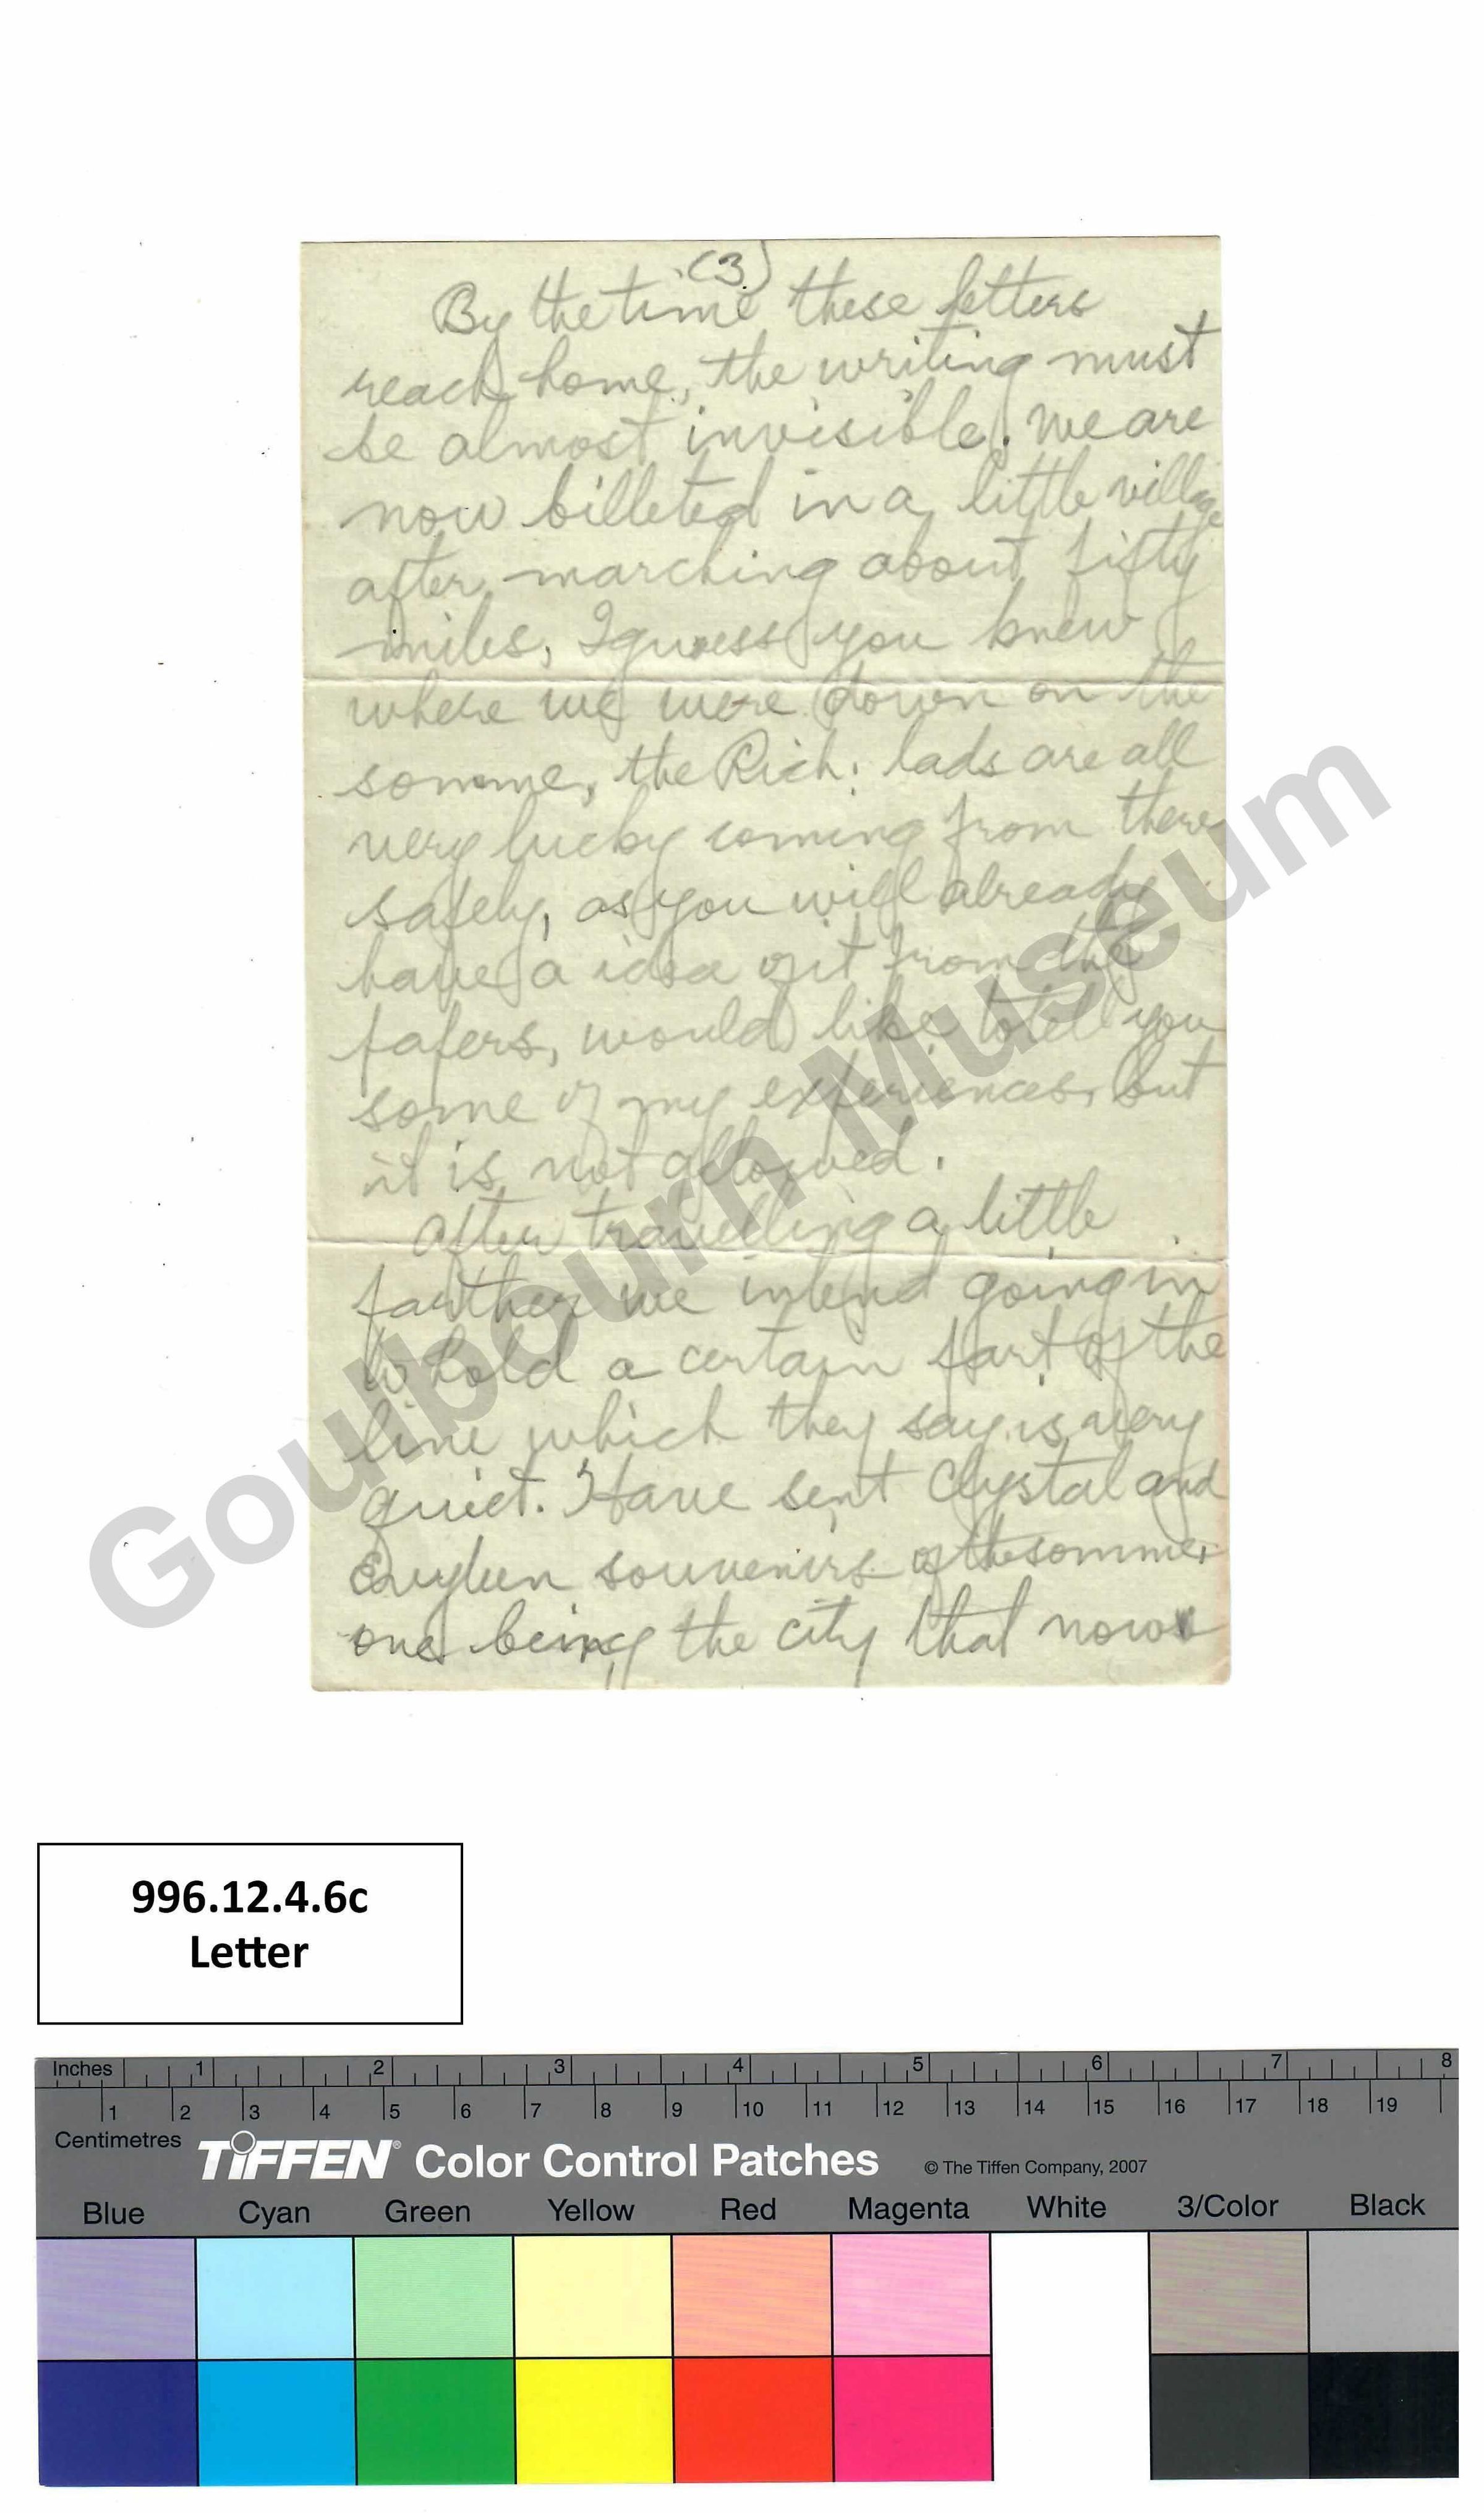 (3)
By the time these letters
reach home, the writing must
be almost invisible. We are
now billeted in a little village
after marching about fifty
miles, I guess you knew
where we were down on the
somme, the Rich. lads are all
very lucky coming from there
safely, as you will already
have a idea of it from the
papers, would like to tell you
some of my experiences, but
it is not allowed.
After travelling a little
farther we intend going in
to hold a certain part of the
line which they say is very
quiet. Have sent Chystal and
souvenirs of the somme,
one being the city that now
Goulbourn Museum
996.12.4.6c
Letter
Inches 1 2 3 4 5 6 7 8
1 2 3 4 5 6 7 8 9 10 11 12 13 14 15 16 17 18 19
Centimetres
TIFFEN® Color Control Patches © The Tiffen Company, 2007
Blue Cyan Green Yellow Red Magenta White 3/Color Black